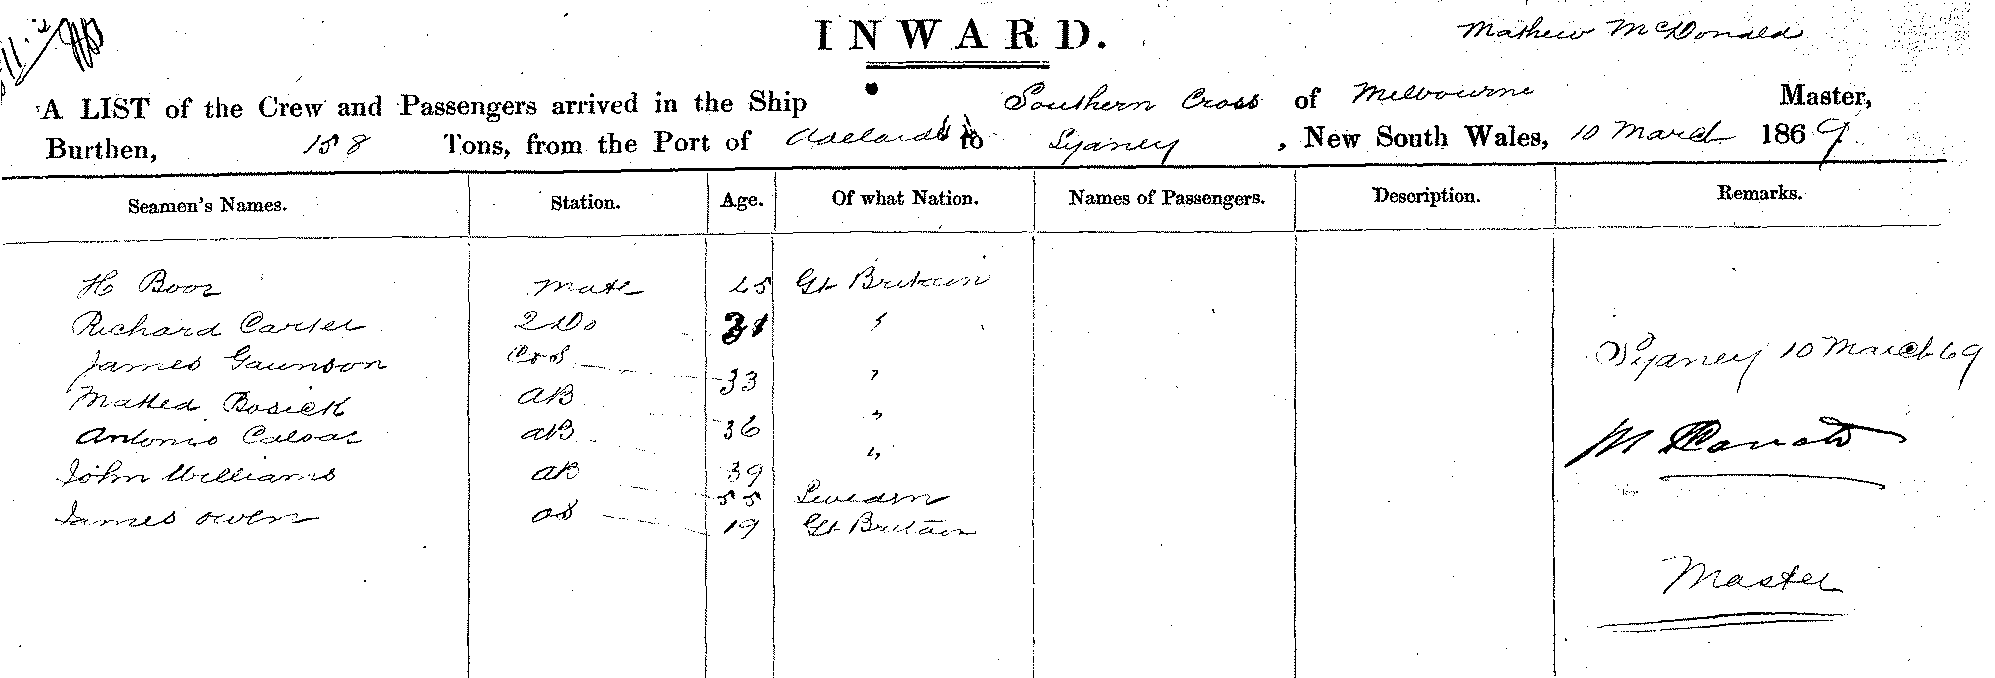 INWARD.
Mathew McDonald
A LIST of the Crew and Passengers arrived in the Ship Southern Cross of Melbourne Master,
Burthen, 158 Tons, from the Port of to Sydney, New South Wales, 10 March 1869
Seamen's Names. Station. Age. Of what Nation. Names of Passengers. Description. Remarks.
H Boor Mate 45 Gt Britain
Richard Carter 2 Do 31 "
James Gaunson C&S 33 "
AB 36 "
Antonio AB 39 "
John Williams AB 55 Sweden
James Owen OS 19 Gt Britain
Sydney 10 March 69
Master